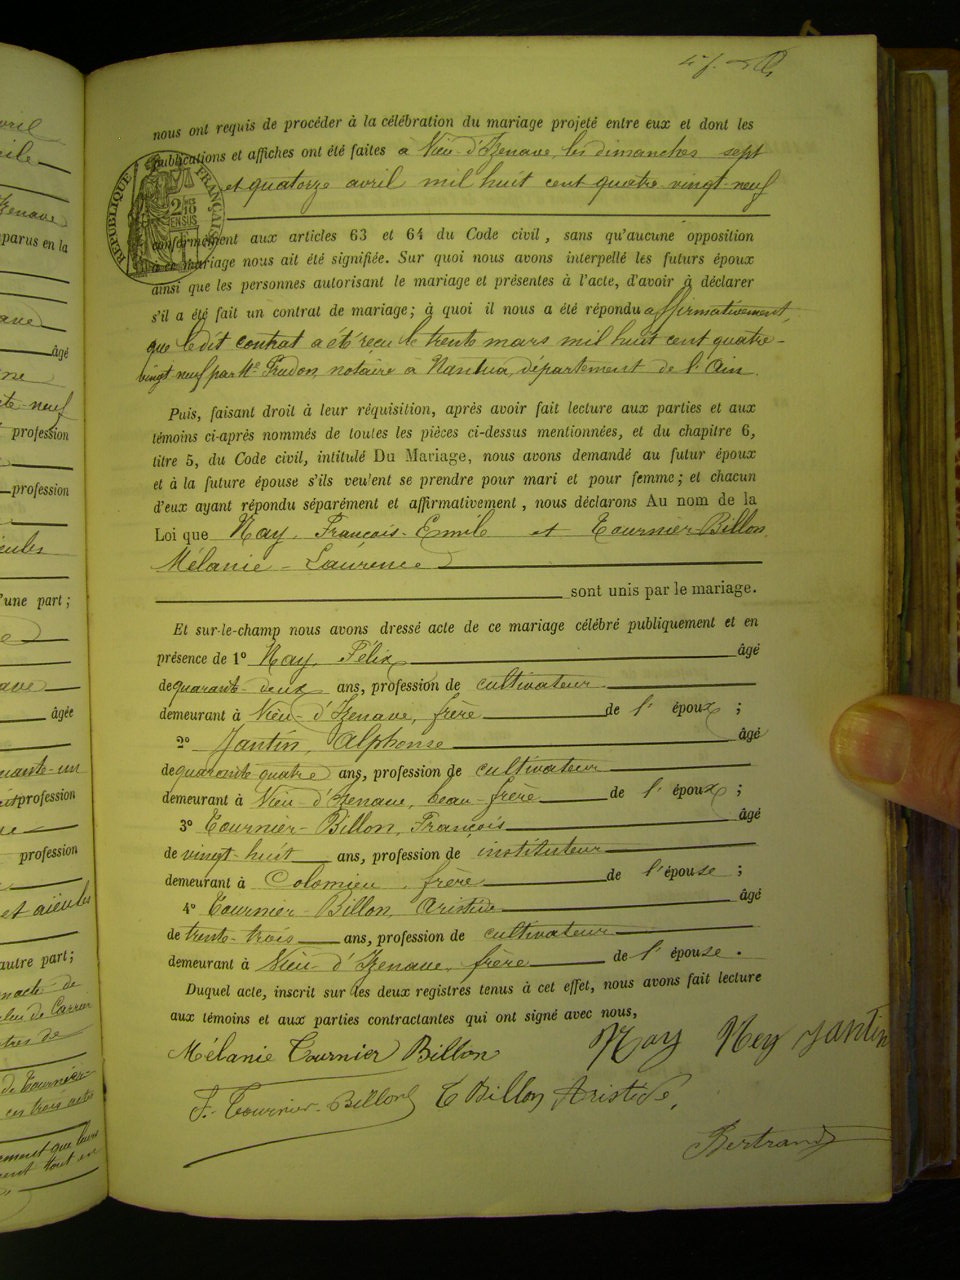 nous ont requis de procéder à la célébration du mariage projeté entre eux et dont les
publications et affiches ont été faites a Vieu-d'Izenave, les dimanches sept
et quatorze avril mil huit cent quatre vingt-neuf
RÉPUBLIQUE FRANÇAISE
2/10 EN SUS
conformément aux articles 63 et 64 du Code civil, sans qu'aucune opposition
à ce mariage nous ait été signifiée. Sur quoi nous avons interpellé les futurs époux
ainsi que les personnes autorisant le mariage et présentes à l'acte, d'avoir à déclarer
s'il a été fait un contrat de mariage; à quoi il nous a été répondu affirmativement,
que le dit contrat a été reçu le trente mars mil huit cent quatre-
vingt-neuf par Me Prudon, notaire à Nantua, département de l'Ain.
Puis, faisant droit à leur réquisition, après avoir fait lecture aux parties et aux
témoins ci-après nommés de toutes les pièces ci-dessus mentionnées, et du chapitre 6,
titre 5, du Code civil, intitulé Du Mariage, nous avons demandé au futur époux
et à la future épouse s'ils veulent se prendre pour mari et pour femme; et chacun
d'eux ayant répondu séparément et affirmativement, nous déclarons Au nom de la
Loi que Nay, François-Emile et Tournier-Billon
Mélanie-Laurence
sont unis par le mariage.
Et sur-le-champ nous avons dressé acte de ce mariage célébré publiquement et en
présence de 1° Nay, Félix âgé
de quarante-deux ans, profession de cultivateur
demeurant à Vieu-d'Izenave, frère de l'époux;
2° Jantin, Alphonse âgé
de quarante quatre ans, profession de cultivateur
demeurant à Vieu-d'Izenave, beau-frère de l'époux;
3° Tournier-Billon, François âgé
de vingt-huit ans, profession de instituteur
demeurant à Colomieu, frère de l'épouse;
4° Tournier-Billon, Aristide âgé
de trente-trois ans, profession de cultivateur
demeurant à Vieu-d'Izenave, frère de l'épouse.
Duquel acte, inscrit sur les deux registres tenus à cet effet, nous avons fait lecture
aux témoins et aux parties contractantes qui ont signé avec nous,
Mélanie Tournier Billon Nay Ney Jantin
F. Tournier-Billon T Billon Aristide,
Bertrand